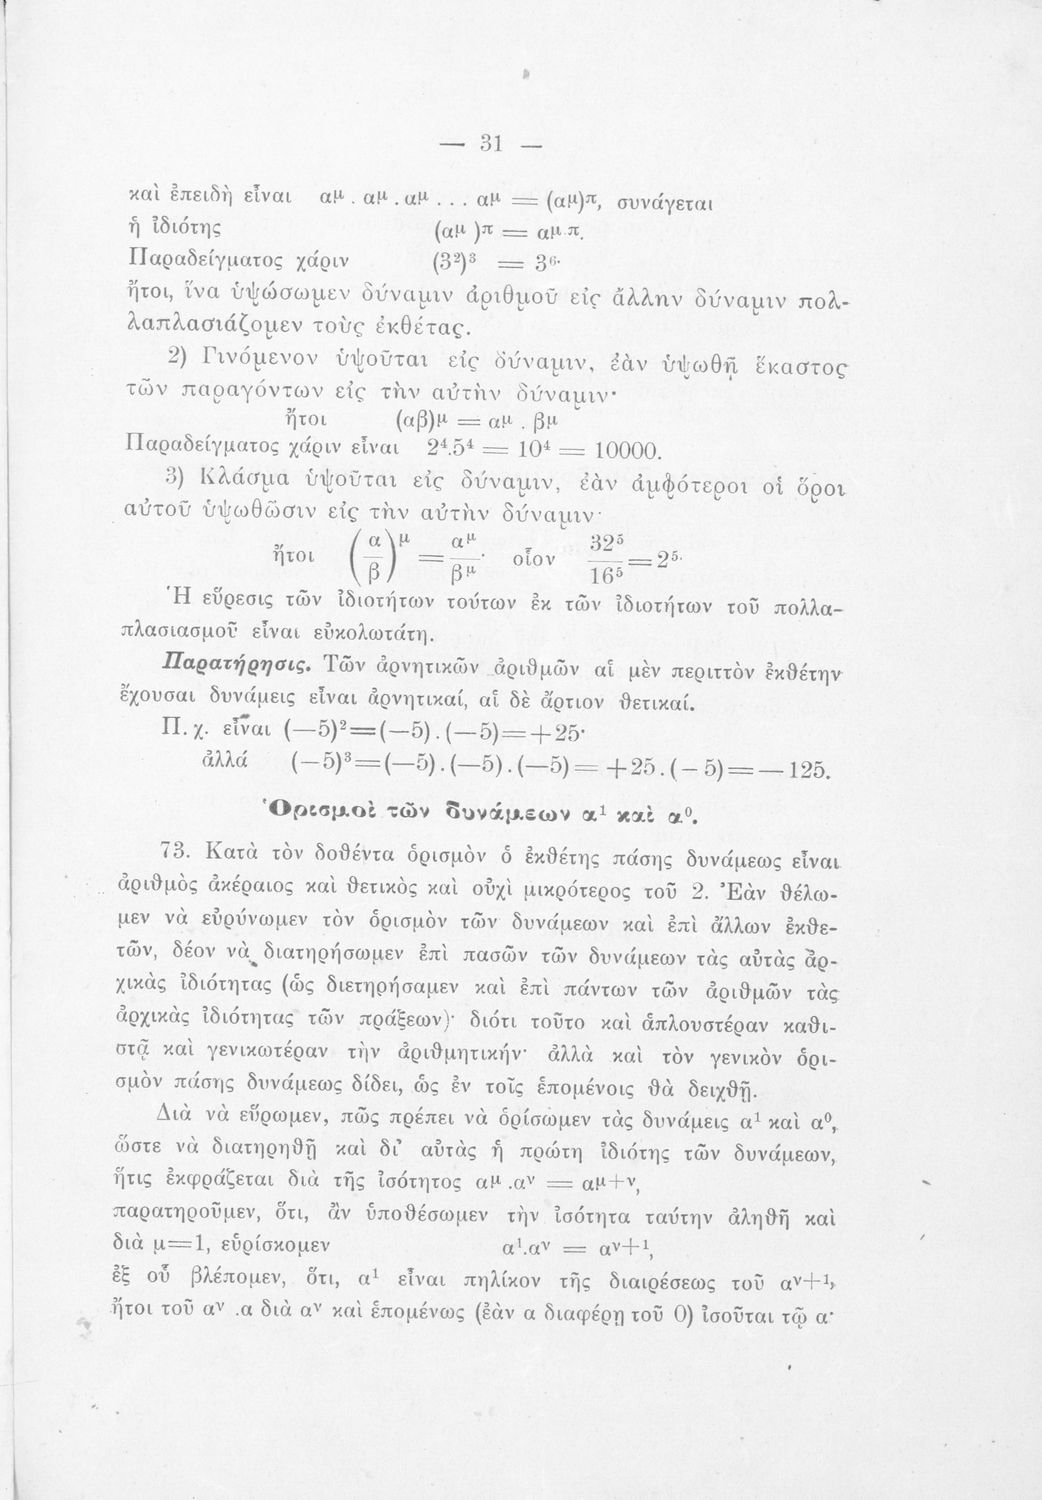 — 31 —
καὶ ἐπειδὴ εἶναι α^μ . α^μ . α^μ . . . α^μ = (α^μ)^π, συνάγεται
ἡ ἰδιότης (α^μ )^π = α^{μ.π}.
Παραδείγματος χάριν (3²)³ = 3⁶·
ἤτοι, ἵνα ὑψώσωμεν δύναμιν ἀριθμοῦ εἰς ἄλλην δύναμιν πολ-
λαπλασιάζομεν τοὺς ἐκθέτας.
2) Γινόμενον ὑψοῦται εἰς δύναμιν, ἐὰν ὑψωθῇ ἕκαστος
τῶν παραγόντων εἰς τὴν αὐτὴν δύναμιν·
ἤτοι (αβ)^μ = α^μ . β^μ
Παραδείγματος χάριν εἶναι 2⁴.5⁴ = 10⁴ = 10000.
3) Κλάσμα ὑψοῦται εἰς δύναμιν, ἐὰν ἀμφότεροι οἱ ὅροι
αὐτοῦ ὑψωθῶσιν εἰς τὴν αὐτὴν δύναμιν·
ἤτοι (α/β)^μ = α^μ/β^μ· οἷον 32⁵/16⁵ = 2⁵·
Ἡ εὕρεσις τῶν ἰδιοτήτων τούτων ἐκ τῶν ἰδιοτήτων τοῦ πολλα-
πλασιασμοῦ εἶναι εὐκολωτάτη.
Παρατήρησις. Τῶν ἀρνητικῶν ἀριθμῶν αἱ μὲν περιττὸν ἐκθέτην
ἔχουσαι δυνάμεις εἶναι ἀρνητικαί, αἱ δὲ ἄρτιον θετικαί.
Π. χ. εἶναι (—5)²=(—5).(—5)=+25·
ἀλλά (—5)³=(—5).(—5).(—5)= +25.(—5)=—125.
Ὁρισμοὶ τῶν δυνάμεων α¹ καὶ α⁰.
73. Κατὰ τὸν δοθέντα ὁρισμὸν ὁ ἐκθέτης πάσης δυνάμεως εἶναι
ἀριθμὸς ἀκέραιος καὶ θετικὸς καὶ οὐχὶ μικρότερος τοῦ 2. Ἐὰν θέλω-
μεν νὰ εὐρύνωμεν τὸν ὁρισμὸν τῶν δυνάμεων καὶ ἐπὶ ἄλλων ἐκθε-
τῶν, δέον νὰ διατηρήσωμεν ἐπὶ πασῶν τῶν δυνάμεων τὰς αὐτὰς ἀρ-
χικὰς ἰδιότητας (ὡς διετηρήσαμεν καὶ ἐπὶ πάντων τῶν ἀριθμῶν τὰς
ἀρχικὰς ἰδιότητας τῶν πράξεων)· διότι τοῦτο καὶ ἁπλουστέραν καθι-
στᾷ καὶ γενικωτέραν τὴν ἀριθμητικήν· ἀλλὰ καὶ τὸν γενικὸν ὁρι-
σμὸν πάσης δυνάμεως δίδει, ὡς ἐν τοῖς ἑπομένοις θὰ δειχθῇ.
Διὰ νὰ εὕρωμεν, πῶς πρέπει νὰ ὁρίσωμεν τὰς δυνάμεις α¹ καὶ α⁰,
ὥστε νὰ διατηρηθῇ καὶ δι' αὐτὰς ἡ πρώτη ἰδιότης τῶν δυνάμεων,
ἥτις ἐκφράζεται διὰ τῆς ἰσότητος α^μ .α^ν = α^{μ+ν},
παρατηροῦμεν, ὅτι, ἂν ὑποθέσωμεν τὴν ἰσότητα ταύτην ἀληθῆ καὶ
διὰ μ=1, εὑρίσκομεν α¹.α^ν = α^{ν+1},
ἐξ οὗ βλέπομεν, ὅτι, α¹ εἶναι πηλίκον τῆς διαιρέσεως τοῦ α^{ν+1},
ἤτοι τοῦ α^ν .α διὰ α^ν καὶ ἑπομένως (ἐὰν α διαφέρῃ τοῦ 0) ἰσοῦται τῷ α·